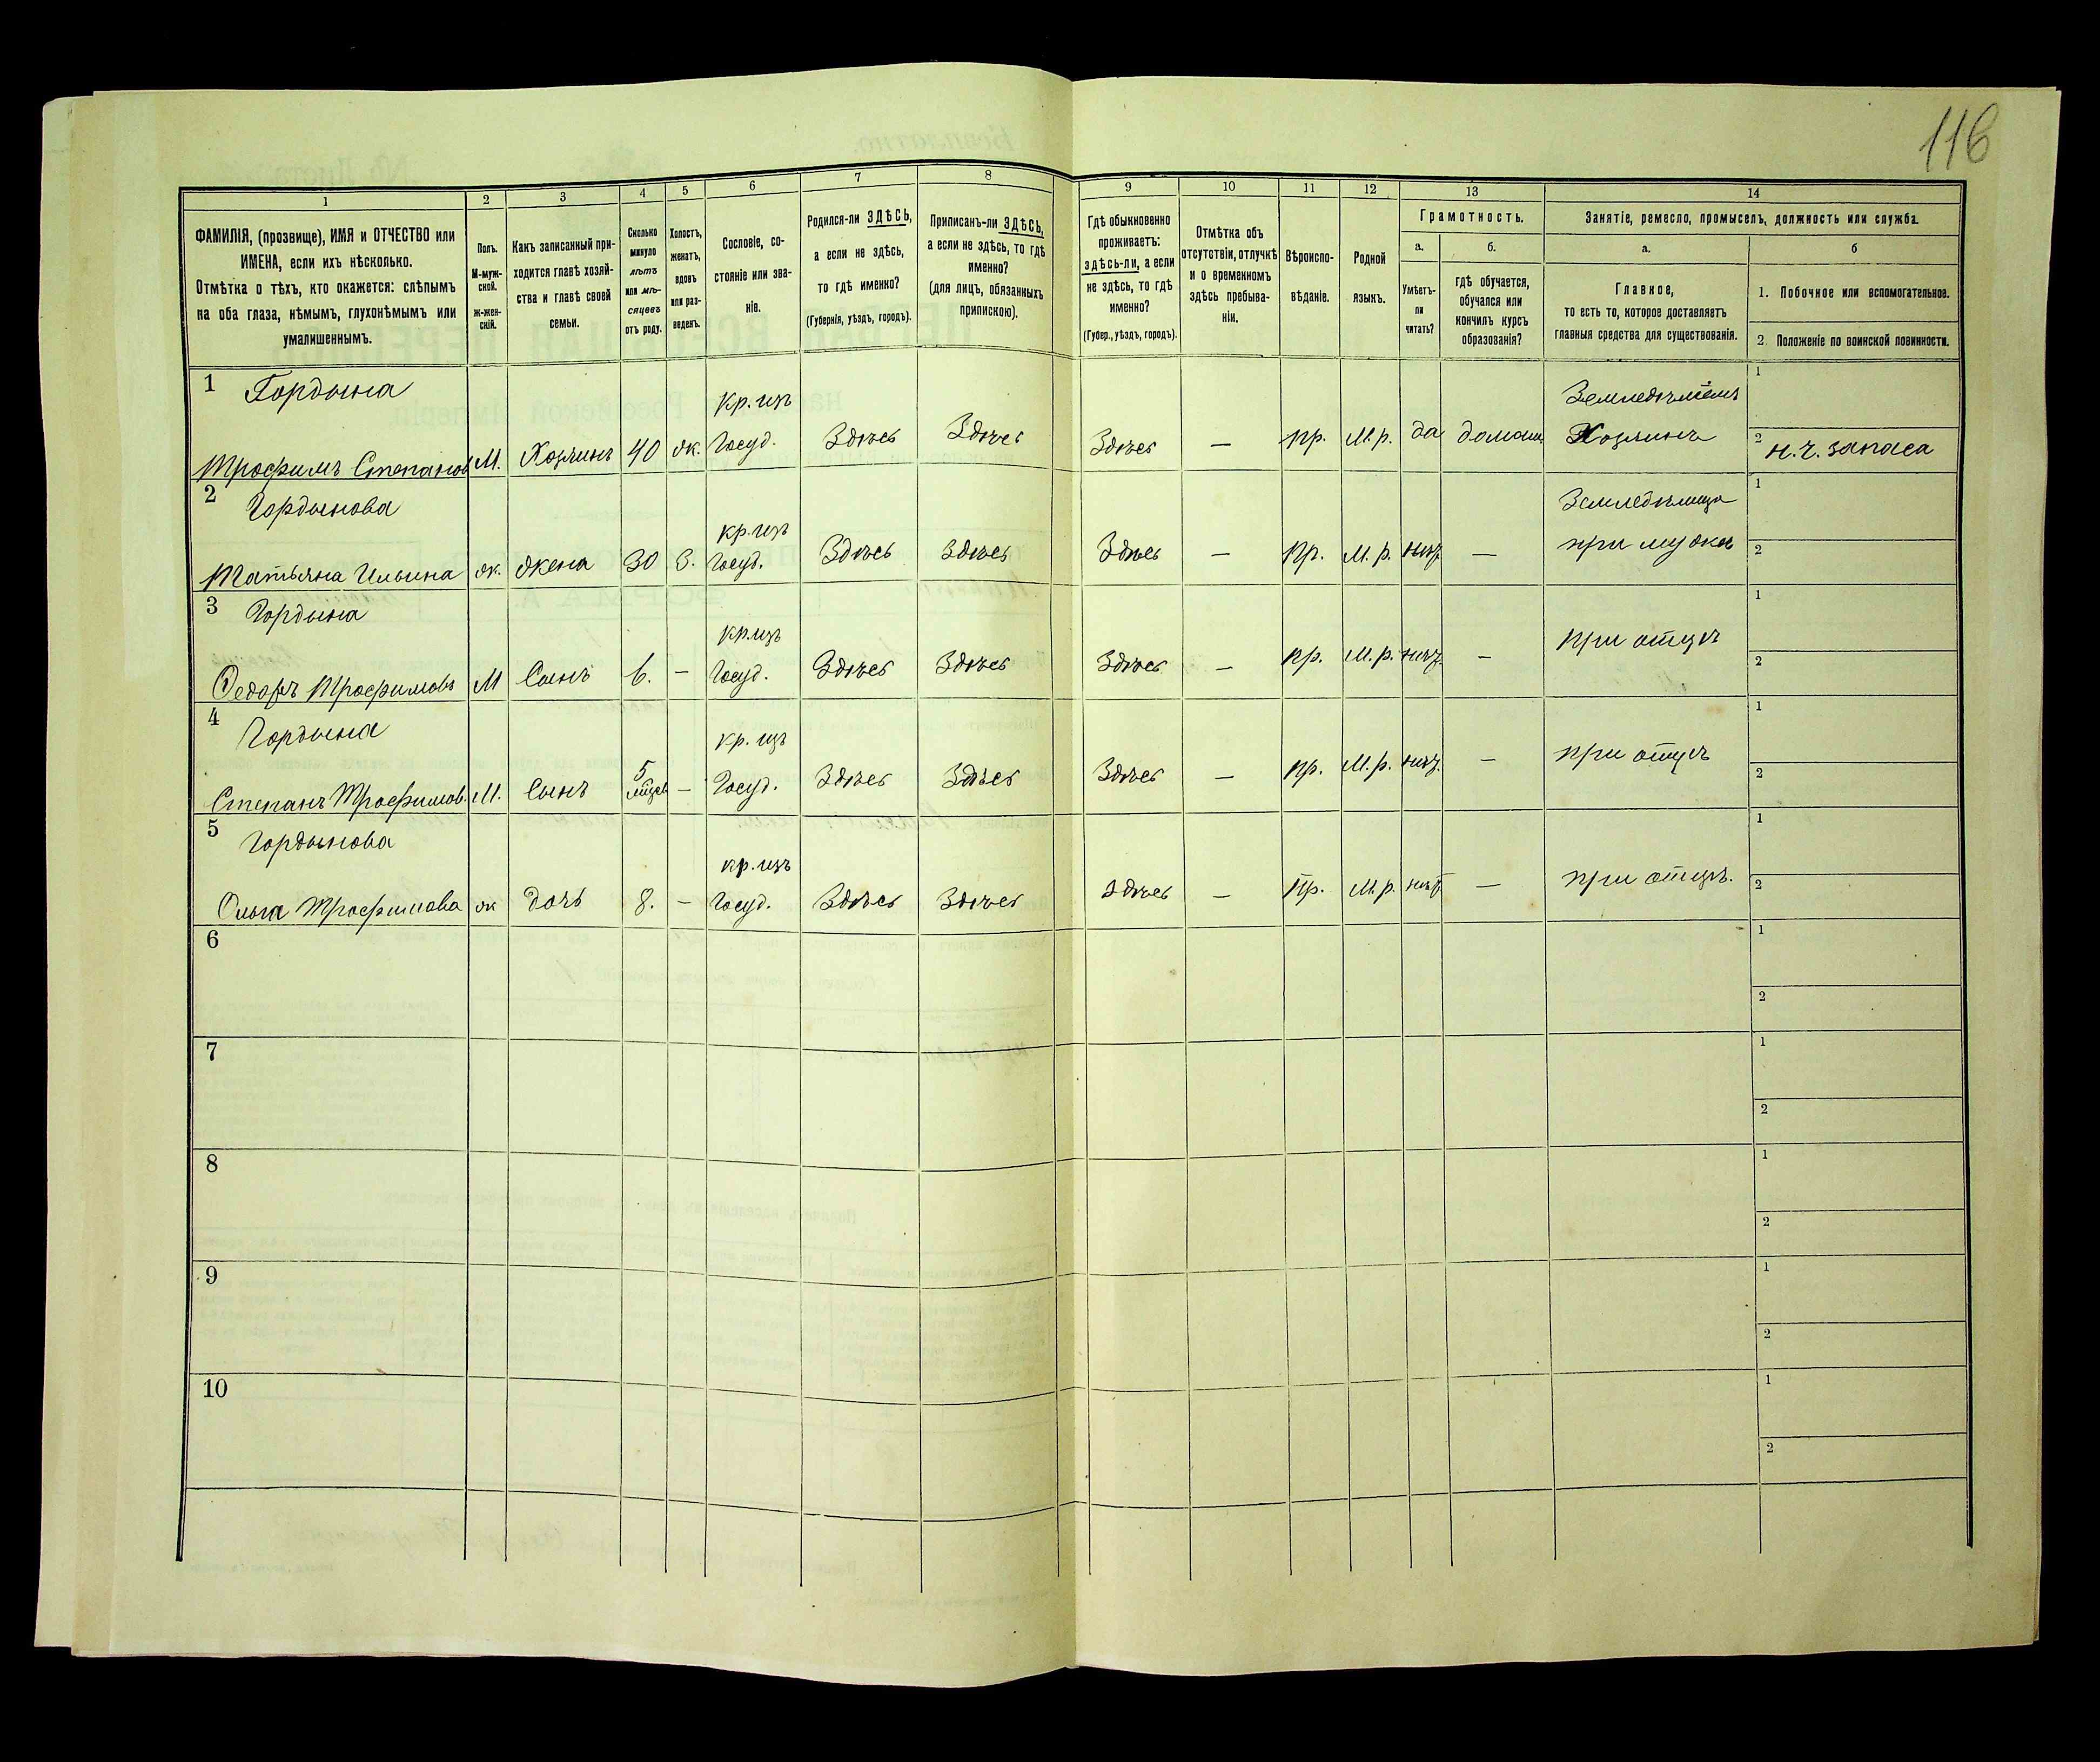 116
1
2
3
4
5
6
7
8
9
10
11
12
13
14
ФАМИЛІЯ, (прозвище), ИМЯ и ОТЧЕСТВО или
ИМЕНА, если ихъ нѣсколько.
Отмѣтка о тѣхъ, кто окажется: слѣпымъ
на оба глаза, нѣмымъ, глухонѣмымъ или
умалишеннымъ.
Полъ.
М-муж-
ской.
ж-жен-
скій.
Какъ записанный при-
ходится главѣ хозяй-
ства и главѣ своей
семьи.
Сколько
минуло
лѣтъ
или мѣ-
сяцевъ
отъ роду.
Холостъ,
женатъ,
вдовъ
или раз-
веденъ.
Сословіе, со-
стояніе или зва-
ніе.
Родился-ли ЗДѢСЬ,
а если не здѣсь,
то гдѣ именно?
(Губернія, уѣздъ, городъ).
Приписанъ-ли ЗДѢСЬ,
а если не здѣсь, то гдѣ
именно?
(для лицъ, обязанныхъ
припискою).
Гдѣ обыкновенно
проживаетъ:
здѣсь-ли, а если
не здѣсь, то гдѣ
именно?
(Губер., уѣздъ, городъ).
Отмѣтка объ
отсутствіи, отлучкѣ
и о временномъ
здѣсь пребыва-
ніи.
Вѣроиспо-
вѣданіе.
Родной
языкъ.
Грамотность.
а.
б.
Умѣетъ-
ли
читать?
гдѣ обучается,
обучался или
кончилъ курсъ
образованія?
Занятіе, ремесло, промыселъ, должность или служба.
а.
б
Главное,
то есть то, которое доставляетъ
главныя средства для существованія.
1. Побочное или вспомогательное.
2. Положеніе по воинской повинности.
1 Гордына кр. изъ Земледѣлецъ 1
Трофимъ Степановъ М. Хозяинъ 40 ж. Госуд. Здѣсь Здѣсь Здѣсь — пр. М. р. да домаш. Хозяинъ 2 н. ч. запаса
2 Гордынова кр. изъ Земледѣлица 1
Татьяна Ильина ж. жена 30 З. Госуд. Здѣсь Здѣсь Здѣсь — Пр. М. р. нѣт — при мужѣ 2
3 Гордына кр. изъ при отцѣ 1
Федоръ Трофимовъ М Сынъ 6. — Госуд. Здѣсь Здѣсь Здѣсь — пр. М. р. нѣт. — 2
4 Гордына кр. изъ при отцѣ 1
Степанъ Трофимов. М. Сынъ 5 мѣсц. — Госуд. Здѣсь Здѣсь Здѣсь — пр. М. р. нѣт. — 2
5 Гордынова кр. изъ при отцѣ. 1
Ольга Трофимова ж дочь 8. — Госуд. Здѣсь Здѣсь Здѣсь — Пр. М. р. нѣт — 2
6 1
2
7 1
2
8 1
2
9 1
2
10 1
2